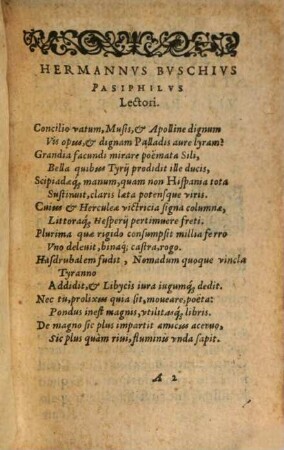 HERMANNVS BVSCHIVS
PASIPHILVS
Lectori.
Concilio vatum, Musis, & Apolline dignum
Vis opus, & dignam Palladis aure lyram?
Grandia facundi mirare poëmata Sili,
Bella quibus Tyrij prodidit ille ducis,
Scipiadæq́; manum, quam non Hispania tota
Sustinuit, claris lata potensque viris.
Cuius & Herculeæ victricia signa columnæ,
Littoraq́; Hesperij pertimuere freti.
Plurima quæ rigido consumpsit millia ferro
Vno delenit, binaq́; castra, rogo.
Hasdrubalem fudit, Nomadum quoque vincla
Tyranno
Addidit, & Libycis iura iugumq́; dedit.
Nec tu, prolixus quia sit, moueare, poëta:
Pondus inest magnis, vtilitasq́; libris.
De magno sic plus impartit amicus aceruo,
Sic plus quàm riui, fluminis vnda sapit.
A 2